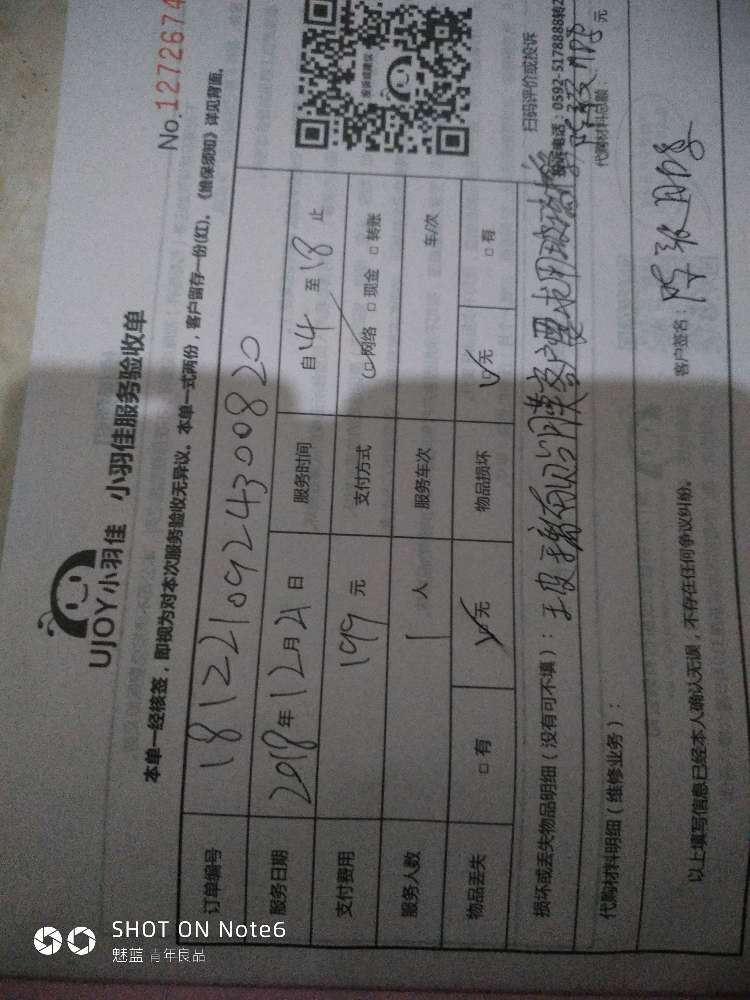 UJOY小羽佳 小羽佳服务验收单
No.1272674
本单一经核签，即视为对本次服务验收无异议。本单一式两份，客户留存一份(红)。《维保须知》详见背面。
订单编号 1812210924300820
服务日期 2018年12月21日 服务时间 自14至18止
支付费用 199元 支付方式 网络 □现金 □转账
服务人数 1人 服务车次 车/次
物品丢失 □有 无 物品损坏 无 □有
损坏或丢失物品明细（没有可不填）：
扫码评价或投诉
投诉电话：0592-5178888转2
代购材料明细（维修业务）：
代购材料总额： 元
以上填写信息已经本人确认无误，不存在任何争议纠纷。 客户签名：
SHOT ON Note6
魅蓝 青年良品